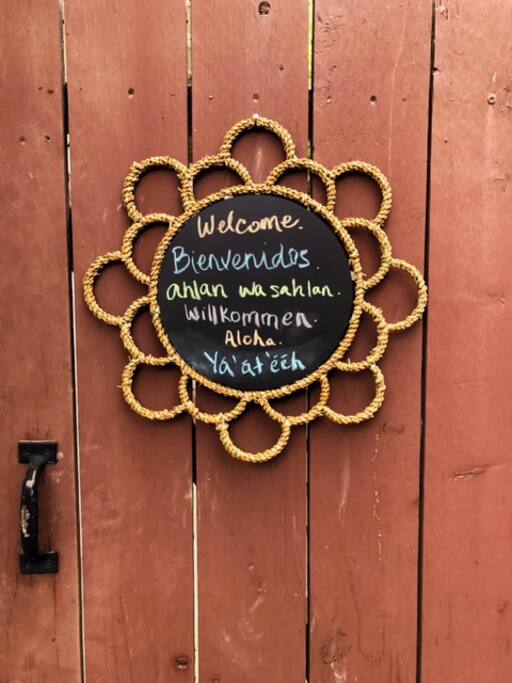 Welcome.
Bienvenidos.
ahlan wasahlan.
Willkommen.
Aloha.
Yá'át'ééh